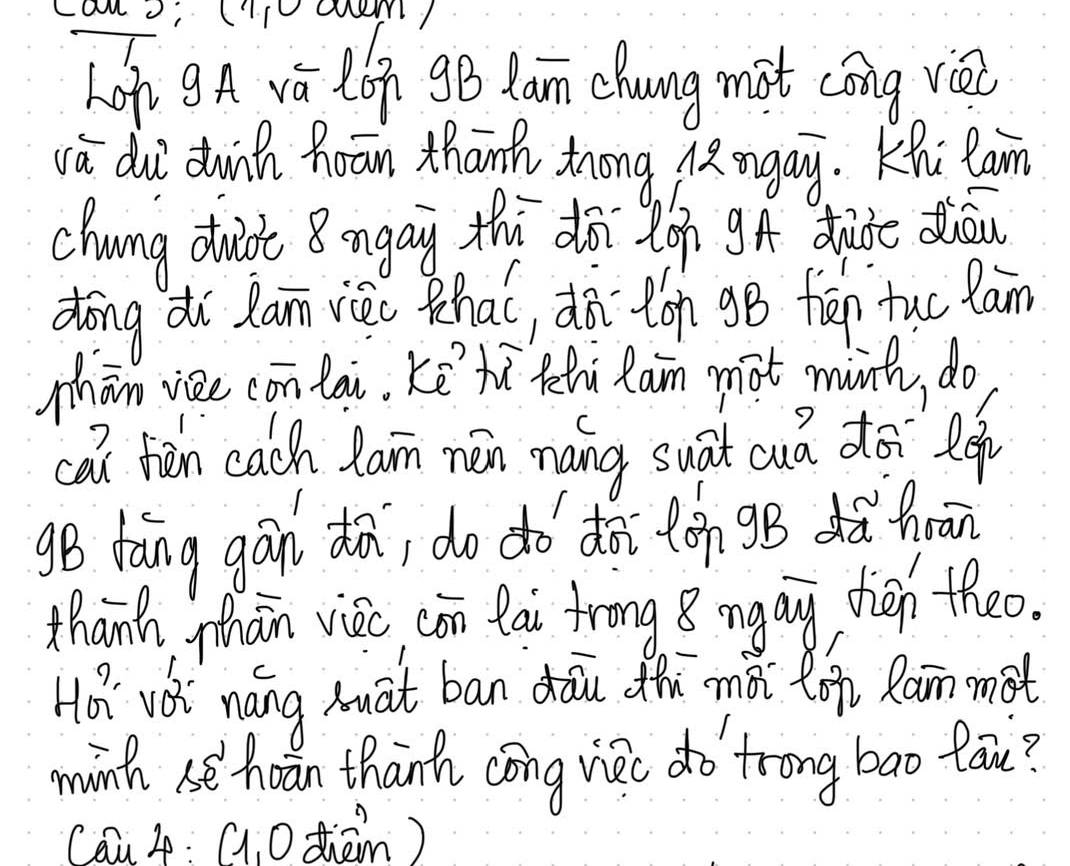 Câu 3: (1,0 điểm)
Lớp 9A và lớp 9B làm chung một công việc
và dự định hoàn thành trong 12 ngày. Khi làm
chung được 8 ngày thì đội lớp 9A được điều
động đi làm việc khác, đội lớp 9B tiếp tục làm
phần việc còn lại. Kể từ khi làm một mình, do
cải tiến cách làm nên năng suất của đội lớp
9B tăng gấp đôi, do đó đội lớp 9B đã hoàn
thành phần việc còn lại trong 8 ngày tiếp theo.
Hỏi với năng suất ban đầu thì mỗi lớp làm một
mình sẽ hoàn thành công việc đó trong bao lâu?
Câu 4: (1,0 điểm)